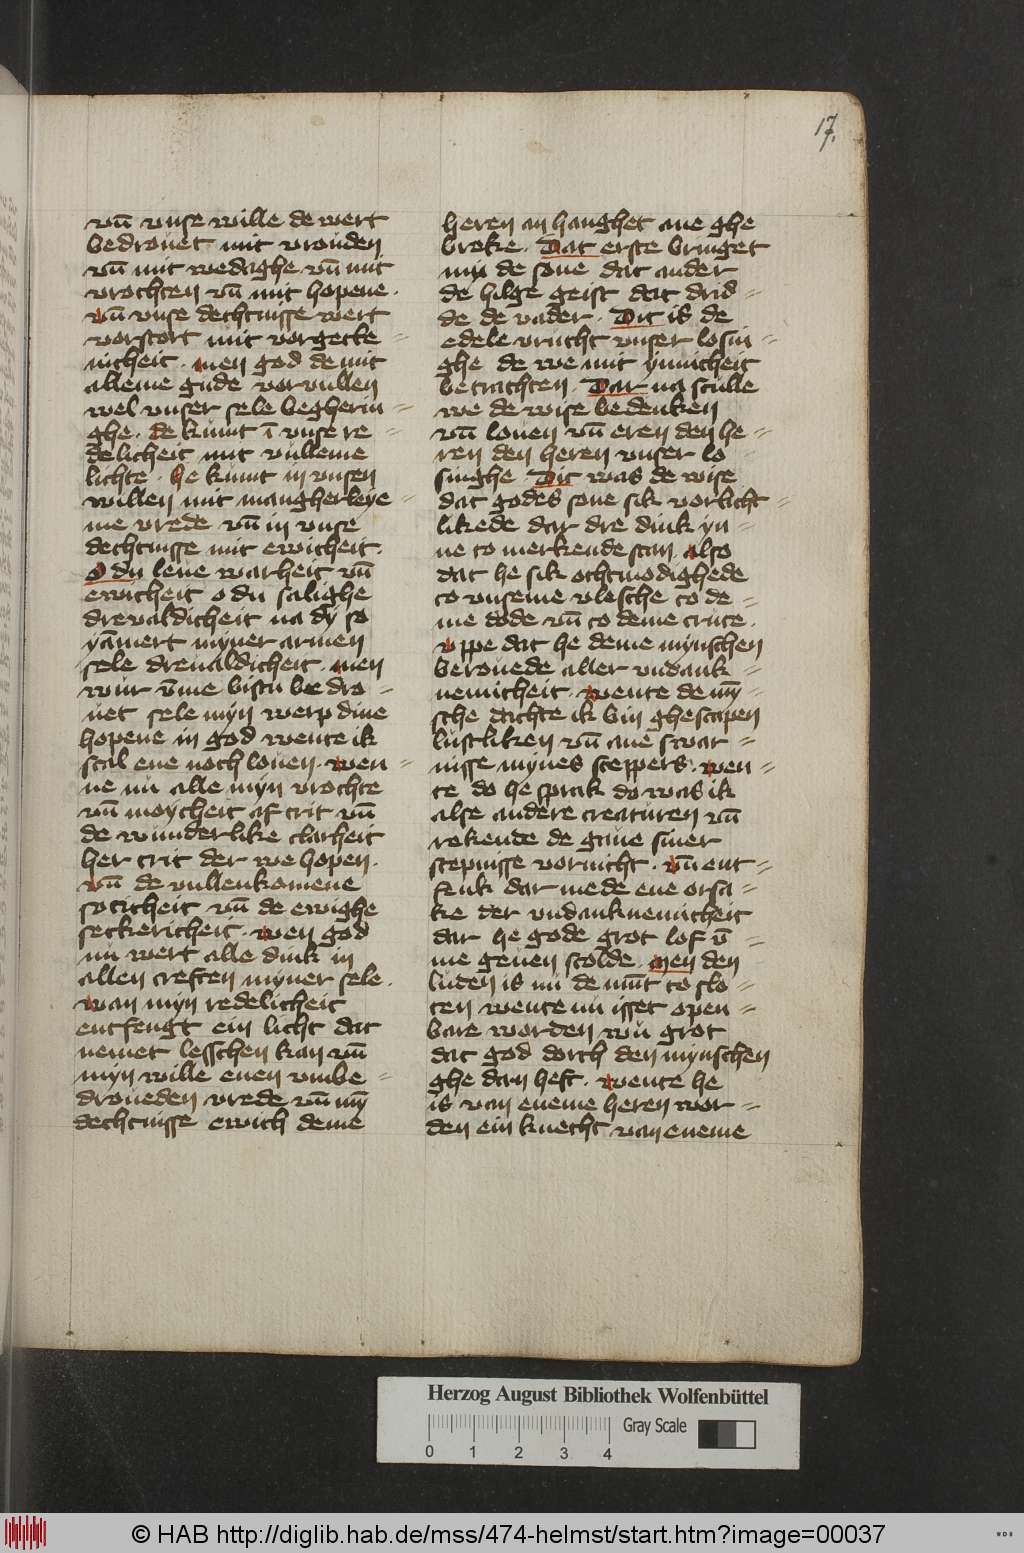 17.
vn̄ vnse wille de wert
bedrouet mit vrouden
vn̄ mit wedaghe vn̄ mit
vrochten vn̄ mit hopene.
vn̄ vnse dechtnisse wert
vorstort mit vorgette=
nicheit. men god de mit
alleme gude vorvullen
wel vnser sele begherin=
ghe. de kumt ī vnse re=
delicheit mit vulleme
lichte. he kumt in vnsen
willen mit mangherleye=
me vrede vn̄ in vnse
dechtnisse mit ewicheit.
O du leue warheit vn̄
ewicheit o du salighe
dreualdicheit na dy so
yām̄ert myner armen
sele dreualdicheit. men
wur v̄me bistu bedro=
uet sele myn werp dine
hopene in god wente ik
scal ene noch louen. wen=
ne nu alle myn vrochte
vn̄ moycheit af trit vn̄
de wunderlike clarheit
her trit der we hopen.
vn̄ de vullenkomene
soticheit vn̄ de ewighe
sekkericheit. wen god
nu wert alle dink in
allen creften myner sele.
wan myn redelicheit
entfengt ein licht dat
nemet lesschen kan vn̄
myn wille enen vmbe=
droueden vrede vn̄ mȳ
dechtnisse ewich deme
heren an hanghet ane ghe
broke. Dat erste bringet
my de sone dat ander
de hilge geist dat drid=
de de vader. Dit is de
edele vrucht vnser losin=
ghe de we mit ynnicheit
betrachten. Dar na sculle
we de wise bedenken
vn̄ louen vn̄ eren den he=
ren den heren vnser lo=
singhe Dit was de wise
dat godes sone sik vorlicht=
likede dar dre dink yn=
ne to merkende stan. also
dat he sik othmodighede
to vnseme vlesche to de=
me dode vn̄ to deme cruce.
vppe dat he deme mynschen
berouede aller vndank=
nemicheit. wente de mȳ=
sche dachte ik bin ghescapen
lustliken vn̄ ane swar=
nisse mynes sceppers. wen=
te do he sprak do was ik
alse andere creaturen vn̄
rekende de gaue siner
scepnisse vornicht. vn̄ ent=
fenk dar mede ene orsa=
ke der vndanknemicheit
dar he gode grot lof v̄=
me geuen scolde. men den
luden is nu de mūt to slo=
ten wente nu isset open=
bare worden wu grot
dat god dorch den mynschen
ghe dan heft. wente he
is van eneme heren wor=
den ein knecht van eneme
Herzog August Bibliothek Wolfenbüttel
Gray Scale
0 1 2 3 4
© HAB http://diglib.hab.de/mss/474-helmst/start.htm?image=00037